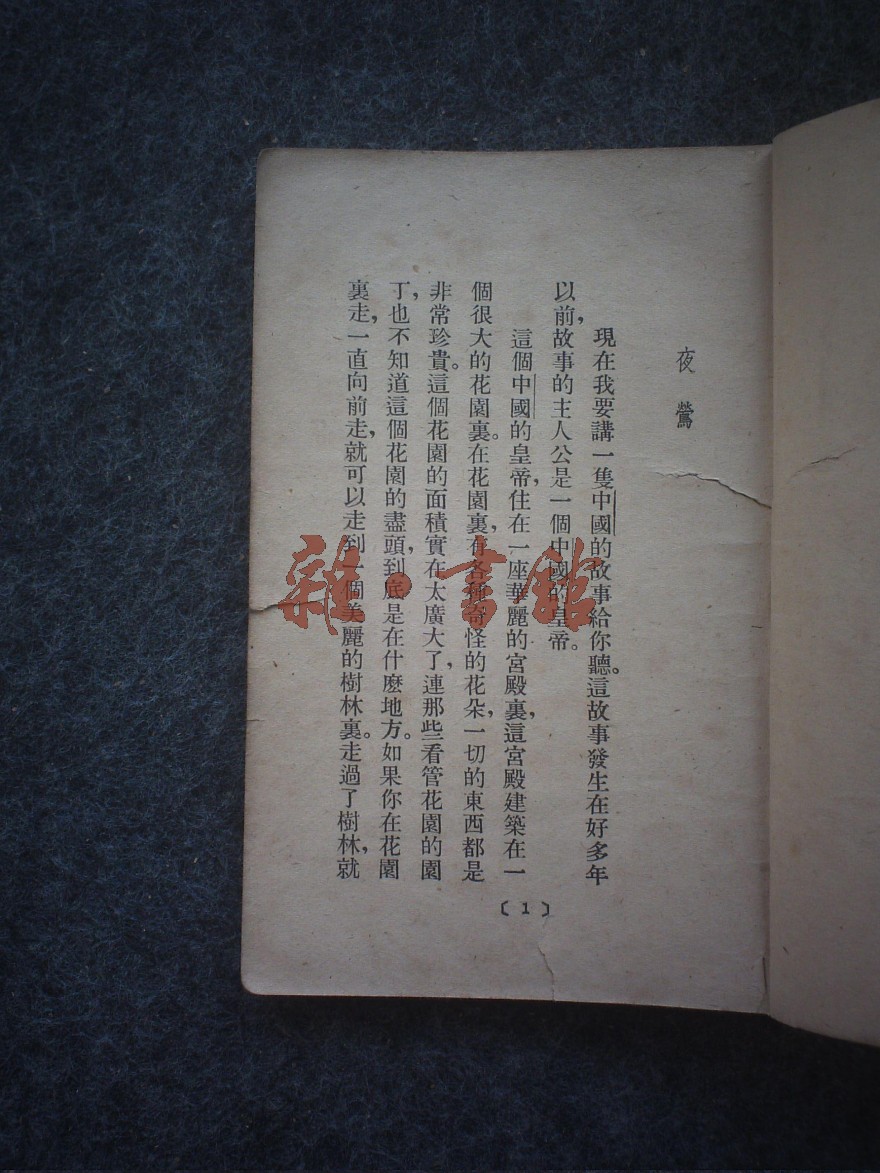 夜鶯
現在我要講一隻中國的故事給你聽。這故事發生在好多年
以前，故事的主人公是一個中國的皇帝。
這個中國的皇帝，住在一座華麗的宮殿裏，這宮殿建築在一
個很大的花園裏。在花園裏，有各種奇怪的花朵，一切的東西都是
非常珍貴。這個花園的面積實在太廣大了，連那些看管花園的園
丁，也不知道這個花園的盡頭，到底是在什麽地方。如果你在花園
裏走，一直向前走，就可以走到一個美麗的樹林裏。走過了樹林，就
〔1〕
雜·書館